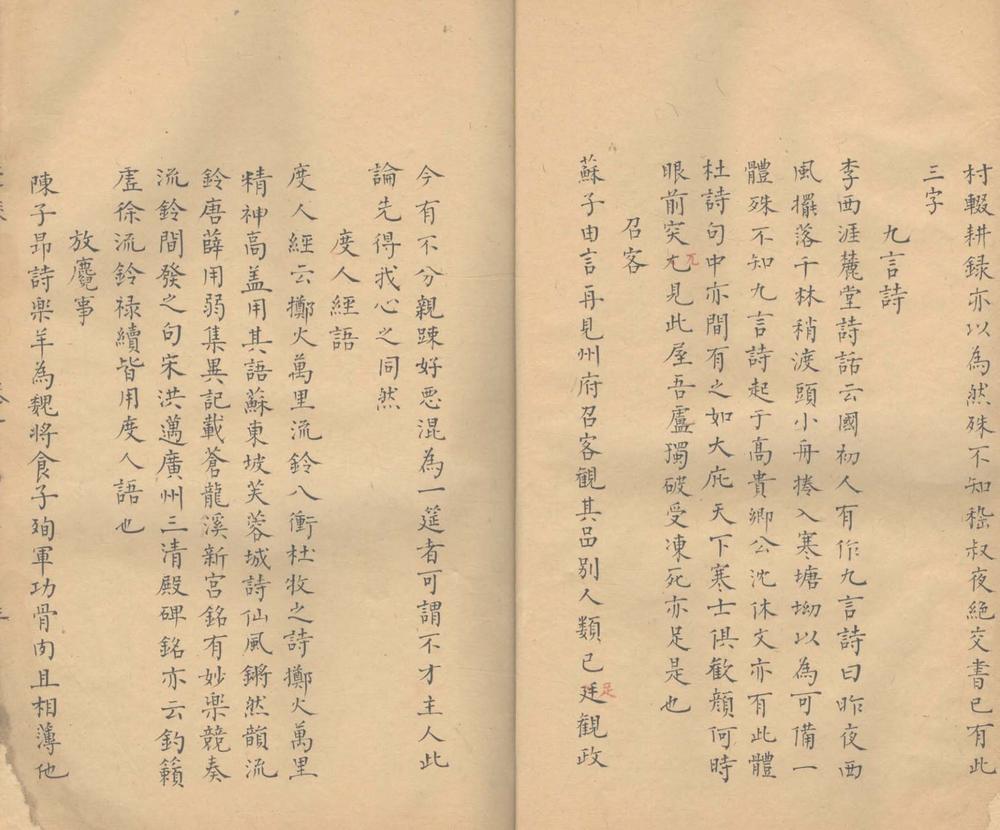 村輟耕録亦以為然殊不知嵇叔夜絶交書已有此
三字
九言詩
李西涯麓堂詩話云國初人有作九言詩曰昨夜西
風擺落千林稍渡頭小舟捲入寒塘坳以為可備一
體殊不知九言詩起于高貴卿公沈休文亦有此體
杜詩句中亦間有之如大庇天下寒士俱歡顔何時
眼前突尤見此屋吾盧獨破受凍死亦足是也
兀
召客
蘇子由言再見州府召客觀其品别人類已廷觀政
足
今有不分親踈好惡混為一筵者可謂不才主人此
論先得我心之同然
度人經語
度人經云擲火萬里流鈴八衝杜牧之詩擲火萬里
精神高盖用其語蘇東坡芙蓉城詩仙風鏘然韻流
鈴唐薛用弱集異記載蒼龍溪新宫銘有妙樂競奏
流鈴間發之句宋洪邁廣州三清殿碑銘亦云鈞籟
虛徐流鈴禄續皆用度人語也
放麑事
陳子昻詩樂羊為魏將食子殉軍功骨肉且相薄他